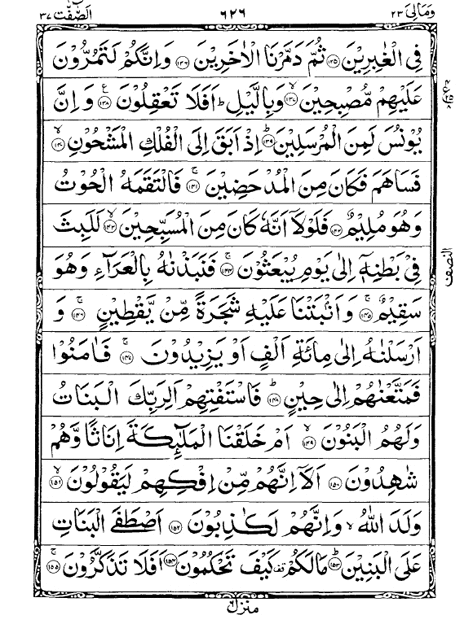 ومالی ٢٣ ٦٢٦ الصّٰفّٰت ٣٧
فِی الْغٰبِرِیْنَ ﴿١٣٥﴾ ثُمَّ دَمَّرْنَا الْاٰخَرِیْنَ ﴿١٣٦﴾ وَاِنَّكُمْ لَتَمُرُّوْنَ
عَلَیْهِمْ مُّصْبِحِیْنَ ﴿١٣٧﴾ وَبِالَّیْلِ ؕ اَفَلَا تَعْقِلُوْنَ ﴿١٣٨﴾ وَاِنَّ
یُوْنُسَ لَمِنَ الْمُرْسَلِیْنَ ﴿١٣٩﴾ اِذْ اَبَقَ اِلَی الْفُلْكِ الْمَشْحُوْنِ ﴿١٤٠﴾
فَسَاهَمَ فَكَانَ مِنَ الْمُدْحَضِیْنَ ﴿١٤١﴾ فَالْتَقَمَهُ الْحُوْتُ
وَهُوَ مُلِیْمٌ ﴿١٤٢﴾ فَلَوْلَاۤ اَنَّهٗ كَانَ مِنَ الْمُسَبِّحِیْنَ ﴿١٤٣﴾ لَلَبِثَ
فِیْ بَطْنِهٖۤ اِلٰی یَوْمِ یُبْعَثُوْنَ ﴿١٤٤﴾ فَنَبَذْنٰهُ بِالْعَرَآءِ وَهُوَ
سَقِیْمٌ ﴿١٤٥﴾ وَاَنْۢبَتْنَا عَلَیْهِ شَجَرَةً مِّنْ یَّقْطِیْنٍ ﴿١٤٦﴾ وَ
اَرْسَلْنٰهُ اِلٰی مِائَةِ اَلْفٍ اَوْ یَزِیْدُوْنَ ﴿١٤٧﴾ فَاٰمَنُوْا
فَمَتَّعْنٰهُمْ اِلٰی حِیْنٍ ﴿١٤٨﴾ فَاسْتَفْتِهِمْ اَلِرَبِّكَ الْبَنَاتُ
وَلَهُمُ الْبَنُوْنَ ﴿١٤٩﴾ اَمْ خَلَقْنَا الْمَلٰٓئِكَةَ اِنَاثًا وَّهُمْ
شٰهِدُوْنَ ﴿١٥٠﴾ اَلَاۤ اِنَّهُمْ مِّنْ اِفْكِهِمْ لَیَقُوْلُوْنَ ﴿١٥١﴾
وَلَدَ اللّٰهُ ۙ وَاِنَّهُمْ لَكٰذِبُوْنَ ﴿١٥٢﴾ اَصْطَفَی الْبَنَاتِ
عَلَی الْبَنِیْنَ ﴿١٥٣﴾ مَا لَكُمْ قف كَیْفَ تَحْكُمُوْنَ ﴿١٥٤﴾ اَفَلَا تَذَكَّرُوْنَ ﴿١٥٥﴾
النصف
منزل ٦